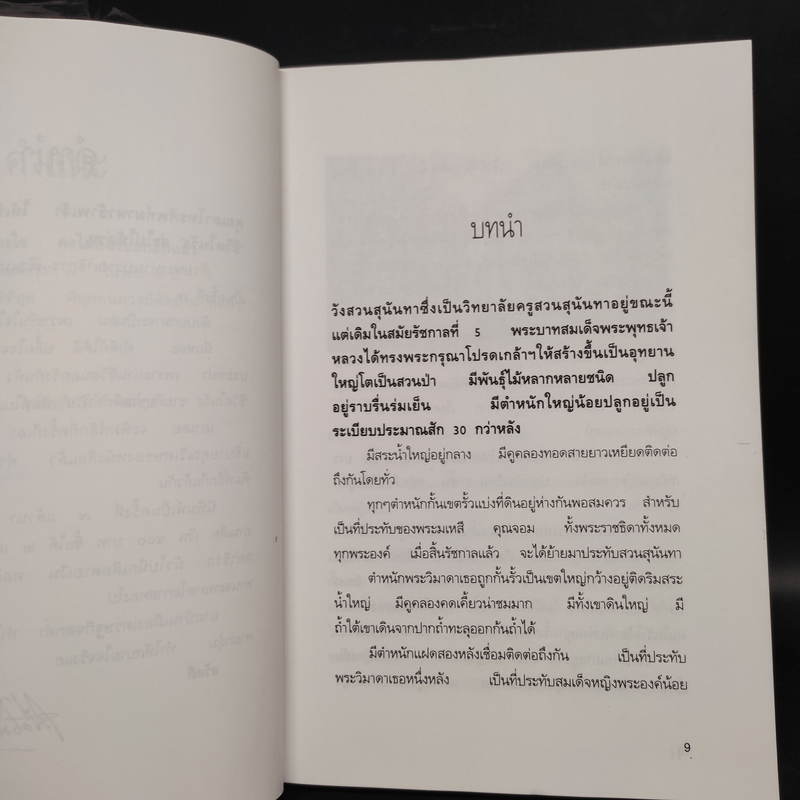 บทนำ
วังสวนสุนันทาซึ่งเป็นวิทยาลัยครูสวนสุนันทาอยู่ขณะนี้
แต่เดิมในสมัยรัชกาลที่ 5 พระบาทสมเด็จพระพุทธเจ้า
หลวงได้ทรงพระกรุณาโปรดเกล้าฯให้สร้างขึ้นเป็นอุทยาน
ใหญ่โตเป็นสวนป่า มีพันธุ์ไม้หลากหลายชนิด ปลูก
อยู่ราบรื่นร่มเย็น มีตำหนักใหญ่น้อยปลูกอยู่เป็น
ระเบียบประมาณสัก 30 กว่าหลัง
มีสระน้ำใหญ่อยู่กลาง มีคูคลองทอดสายยาวเหยียดติดต่อ
ถึงกันโดยทั่ว
ทุกๆตำหนักกั้นเขตรั้วแบ่งที่ดินอยู่ห่างกันพอสมควร สำหรับ
เป็นที่ประทับของพระมเหสี คุณจอม ทั้งพระราชธิดาทั้งหมด
ทุกพระองค์ เมื่อสิ้นรัชกาลแล้ว จะได้ย้ายมาประทับสวนสุนันทา
ตำหนักพระวิมาดาเธอถูกกั้นรั้วเป็นเขตใหญ่กว้างอยู่ติดริมสระ
น้ำใหญ่ มีคูคลองคดเคี้ยวน่าชมมาก มีทั้งเขาดินใหญ่ มี
ถ้ำใต้เขาเดินจากปากถ้ำทะลุออกก้นถ้ำได้
มีตำหนักแฝดสองหลังเชื่อมติดต่อถึงกัน เป็นที่ประทับ
พระวิมาดาเธอหนึ่งหลัง เป็นที่ประทับสมเด็จหญิงพระองค์น้อย
9